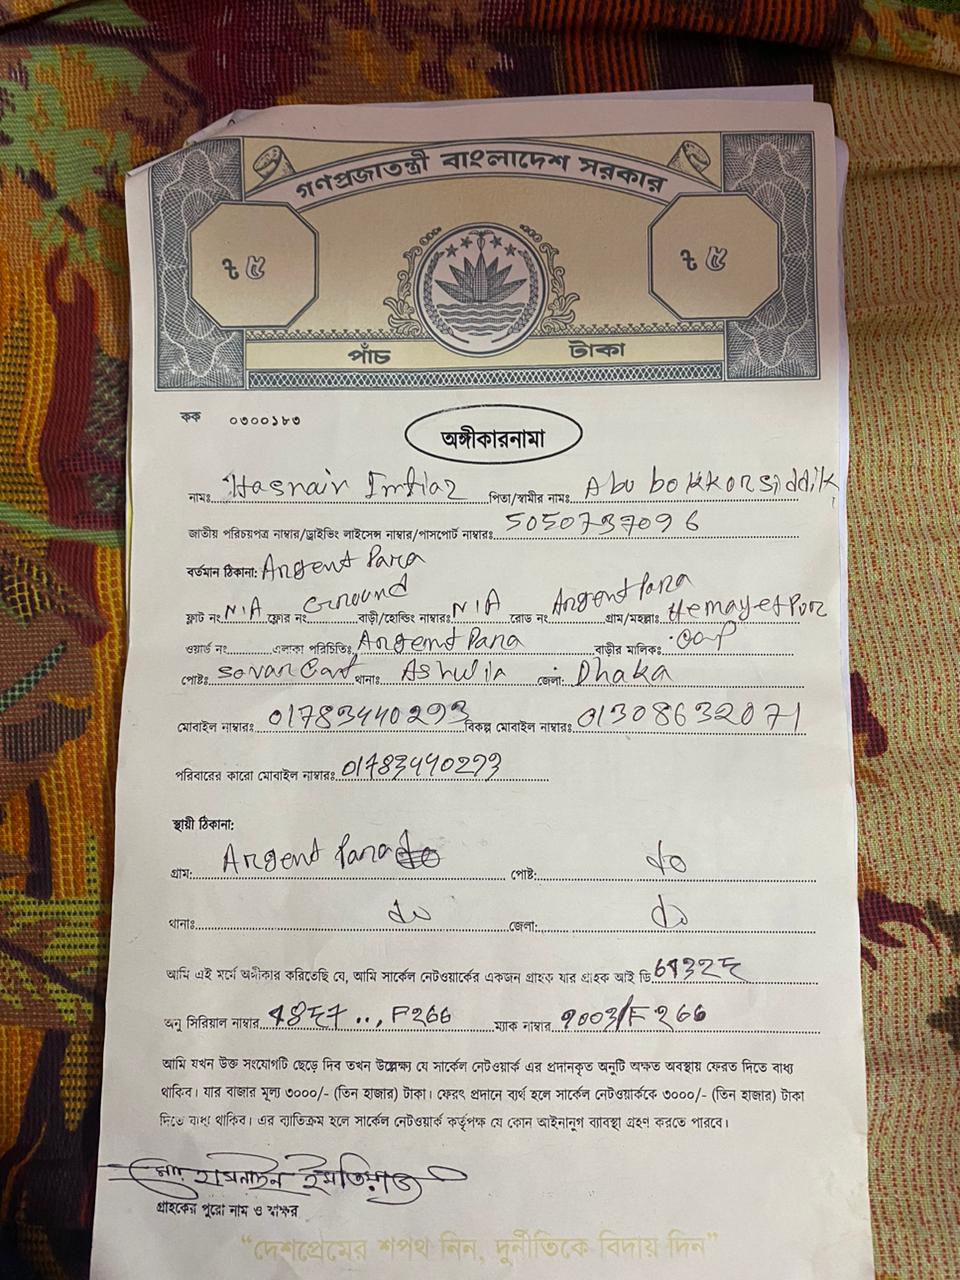 গণপ্রজাতন্ত্রী বাংলাদেশ সরকার
৳ ৫ ৳ ৫
পাঁচ টাকা
কক ০৩০০১৮৩
অঙ্গীকারনামা
নামঃ Hasnain Imtiaz পিতা/স্বামীর নামঃ Abu bokkor siddik
জাতীয় পরিচয়পত্র নাম্বার/ড্রাইভিং লাইসেন্স নাম্বার/পাসপোর্ট নাম্বারঃ 5050737096
বর্তমান ঠিকানা: Argent Para
ফ্লাট নং N/A ফ্লোর নং Ground বাড়ী/হোল্ডিং নাম্বারঃ N/A রোড নং Argent Para গ্রাম/মহল্লাঃ Hemayet Pur
ওয়ার্ড নং এলাকা পরিচিতিঃ Argent Para বাড়ীর মালিকঃ
পোষ্টঃ থানাঃ Ashulia জেলা: Dhaka
মোবাইল নাম্বারঃ 01783440293 বিকল্প মোবাইল নাম্বারঃ 01308632071
পরিবারের কারো মোবাইল নাম্বারঃ 01783440293
স্থায়ী ঠিকানা:
গ্রাম: Argent Para পোষ্ট: do
থানাঃ do জেলা: do
আমি এই মর্মে অঙ্গীকার করিতেছি যে, আমি সার্কেল নেটওয়ার্কের একজন গ্রাহক যার গ্রাহক আই ডি
অনু সিরিয়াল নাম্বার F266 ম্যাক নাম্বার 9003/F266
আমি যখন উক্ত সংযোগটি ছেড়ে দিব তখন উল্লেক্ষ্য যে সার্কেল নেটওয়ার্ক এর প্রদানকৃত অনুটি অক্ষত অবস্থায় ফেরত দিতে বাধ্য
থাকিব। যার বাজার মূল্য ৩০০০/- (তিন হাজার) টাকা। ফেরৎ প্রদানে ব্যর্থ হলে সার্কেল নেটওয়ার্ককে ৩০০০/- (তিন হাজার) টাকা
দিতে বাধ্য থাকিব। এর ব্যতিক্রম হলে সার্কেল নেটওয়ার্ক কর্তৃপক্ষ যে কোন আইনানুগ ব্যবস্থা গ্রহণ করতে পারবে।
মোঃ হাসনাইন ইমতিয়াজ
গ্রাহকের পুরো নাম ও স্বাক্ষর
“দেশপ্রেমের শপথ নিন, দুর্নীতিকে বিদায় দিন”